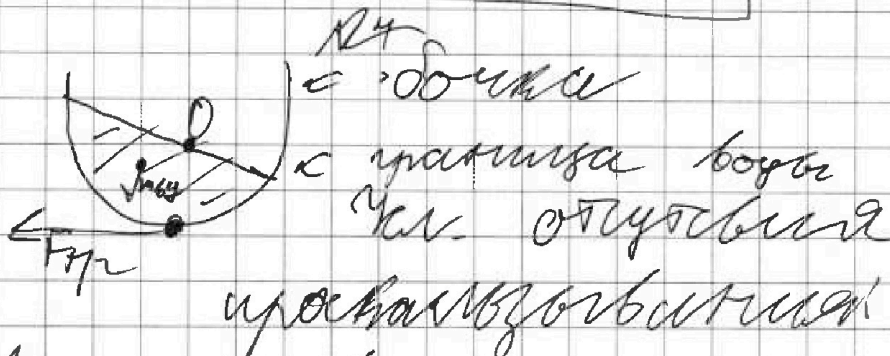 №4
< бочка
O
< граница воды
Fтр
Усл. отсутсвия
проскальзывания